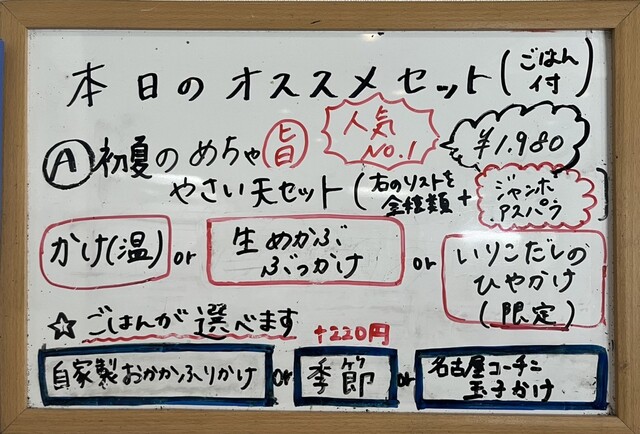 本日のオススメセット(ごはん付)
人気No.1
¥1.980
Ⓐ初夏のめちゃ旨
やさい天セット(右のリストを全種類+ジャンボアスパラ)
かけ(温) or 生めかぶぶっかけ or いりこだしのひやかけ(限定)
☆ごはんが選べます
+220円
自家製おかかふりかけ or 季節 or 名古屋コーチン玉子かけ